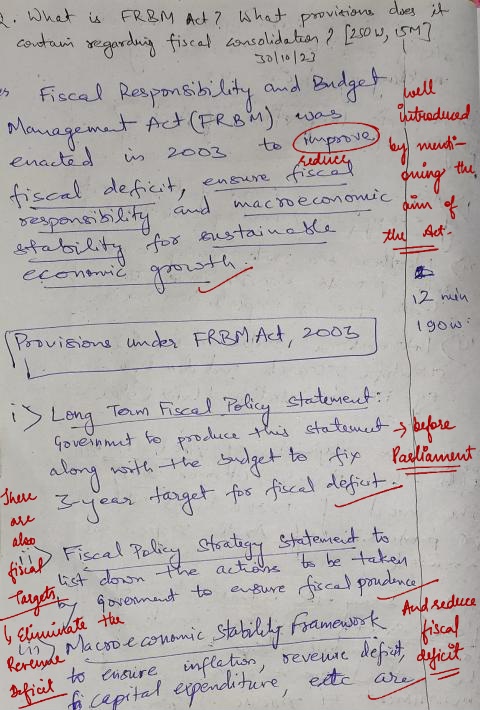 Q. What is FRBM Act? What provisions does it
contain regarding fiscal consolidation? [250W, 15M]
30/10/23
Fiscal Responsibility and Budget
Management Act (FRBM) was
enacted in 2003 to improve
reduce
fiscal deficit, ensure fiscal
responsibility and macroeconomic
stability for sustainable
economic growth.
well
introduced
by menti-
oning the
aim of
the Act.
12 min
190w.
Provisions under FRBM Act, 2003
i> Long Term Fiscal Policy statement:
Government to produce this statement → before
Parliament
along with the budget to fix
3-year target for fiscal deficit.
There
are
also
fiscal
Targets.
↳ Eliminate the
Revenue
Deficit
ii> Fiscal Policy Strategy Statement to
list down the actions to be taken
by Government to ensure fiscal prudence
iii> Macroeconomic Stability Framework
to ensure inflation, revenue deficit,
capital expenditure, etc are
And reduce
fiscal
deficit